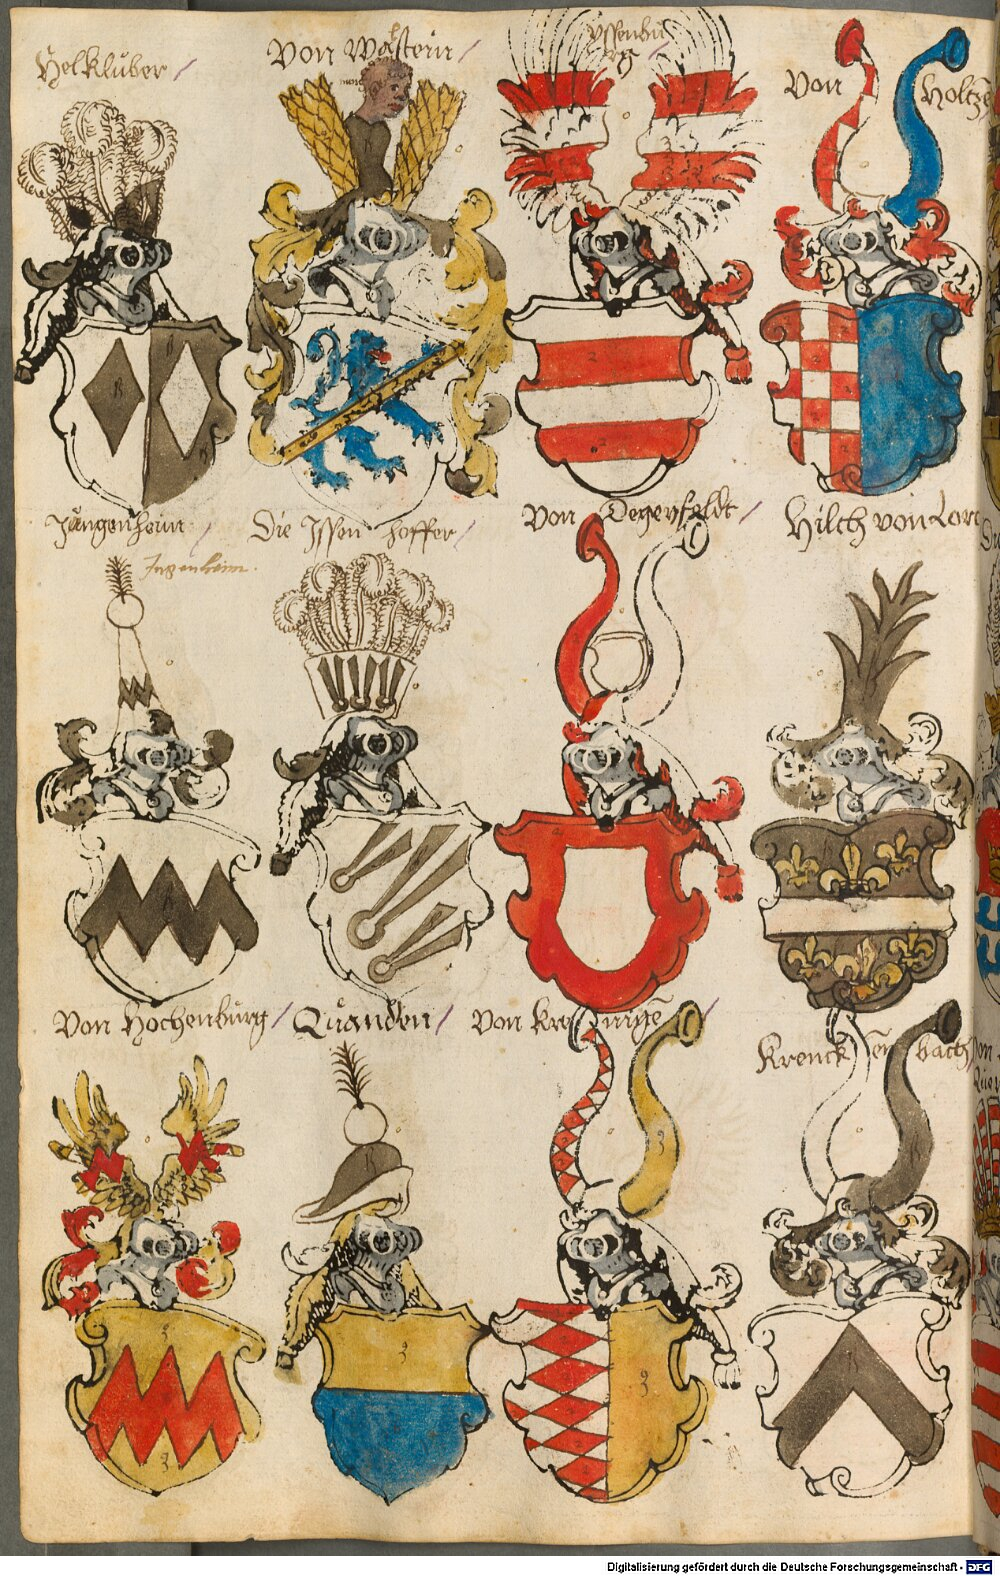 Helklüber /
Von Walstein /
Yssenbu
rg /
Von Holtz
Jüngenheim /
Ingenheim.
Die Issen hoffer /
Von Degenfeldt /
Hilch von Lor
Von Hochenbürg /
Quanden /
Von
Krenck bach
Digitalisierung gefördert durch die Deutsche Forschungsgemeinschaft - DFG